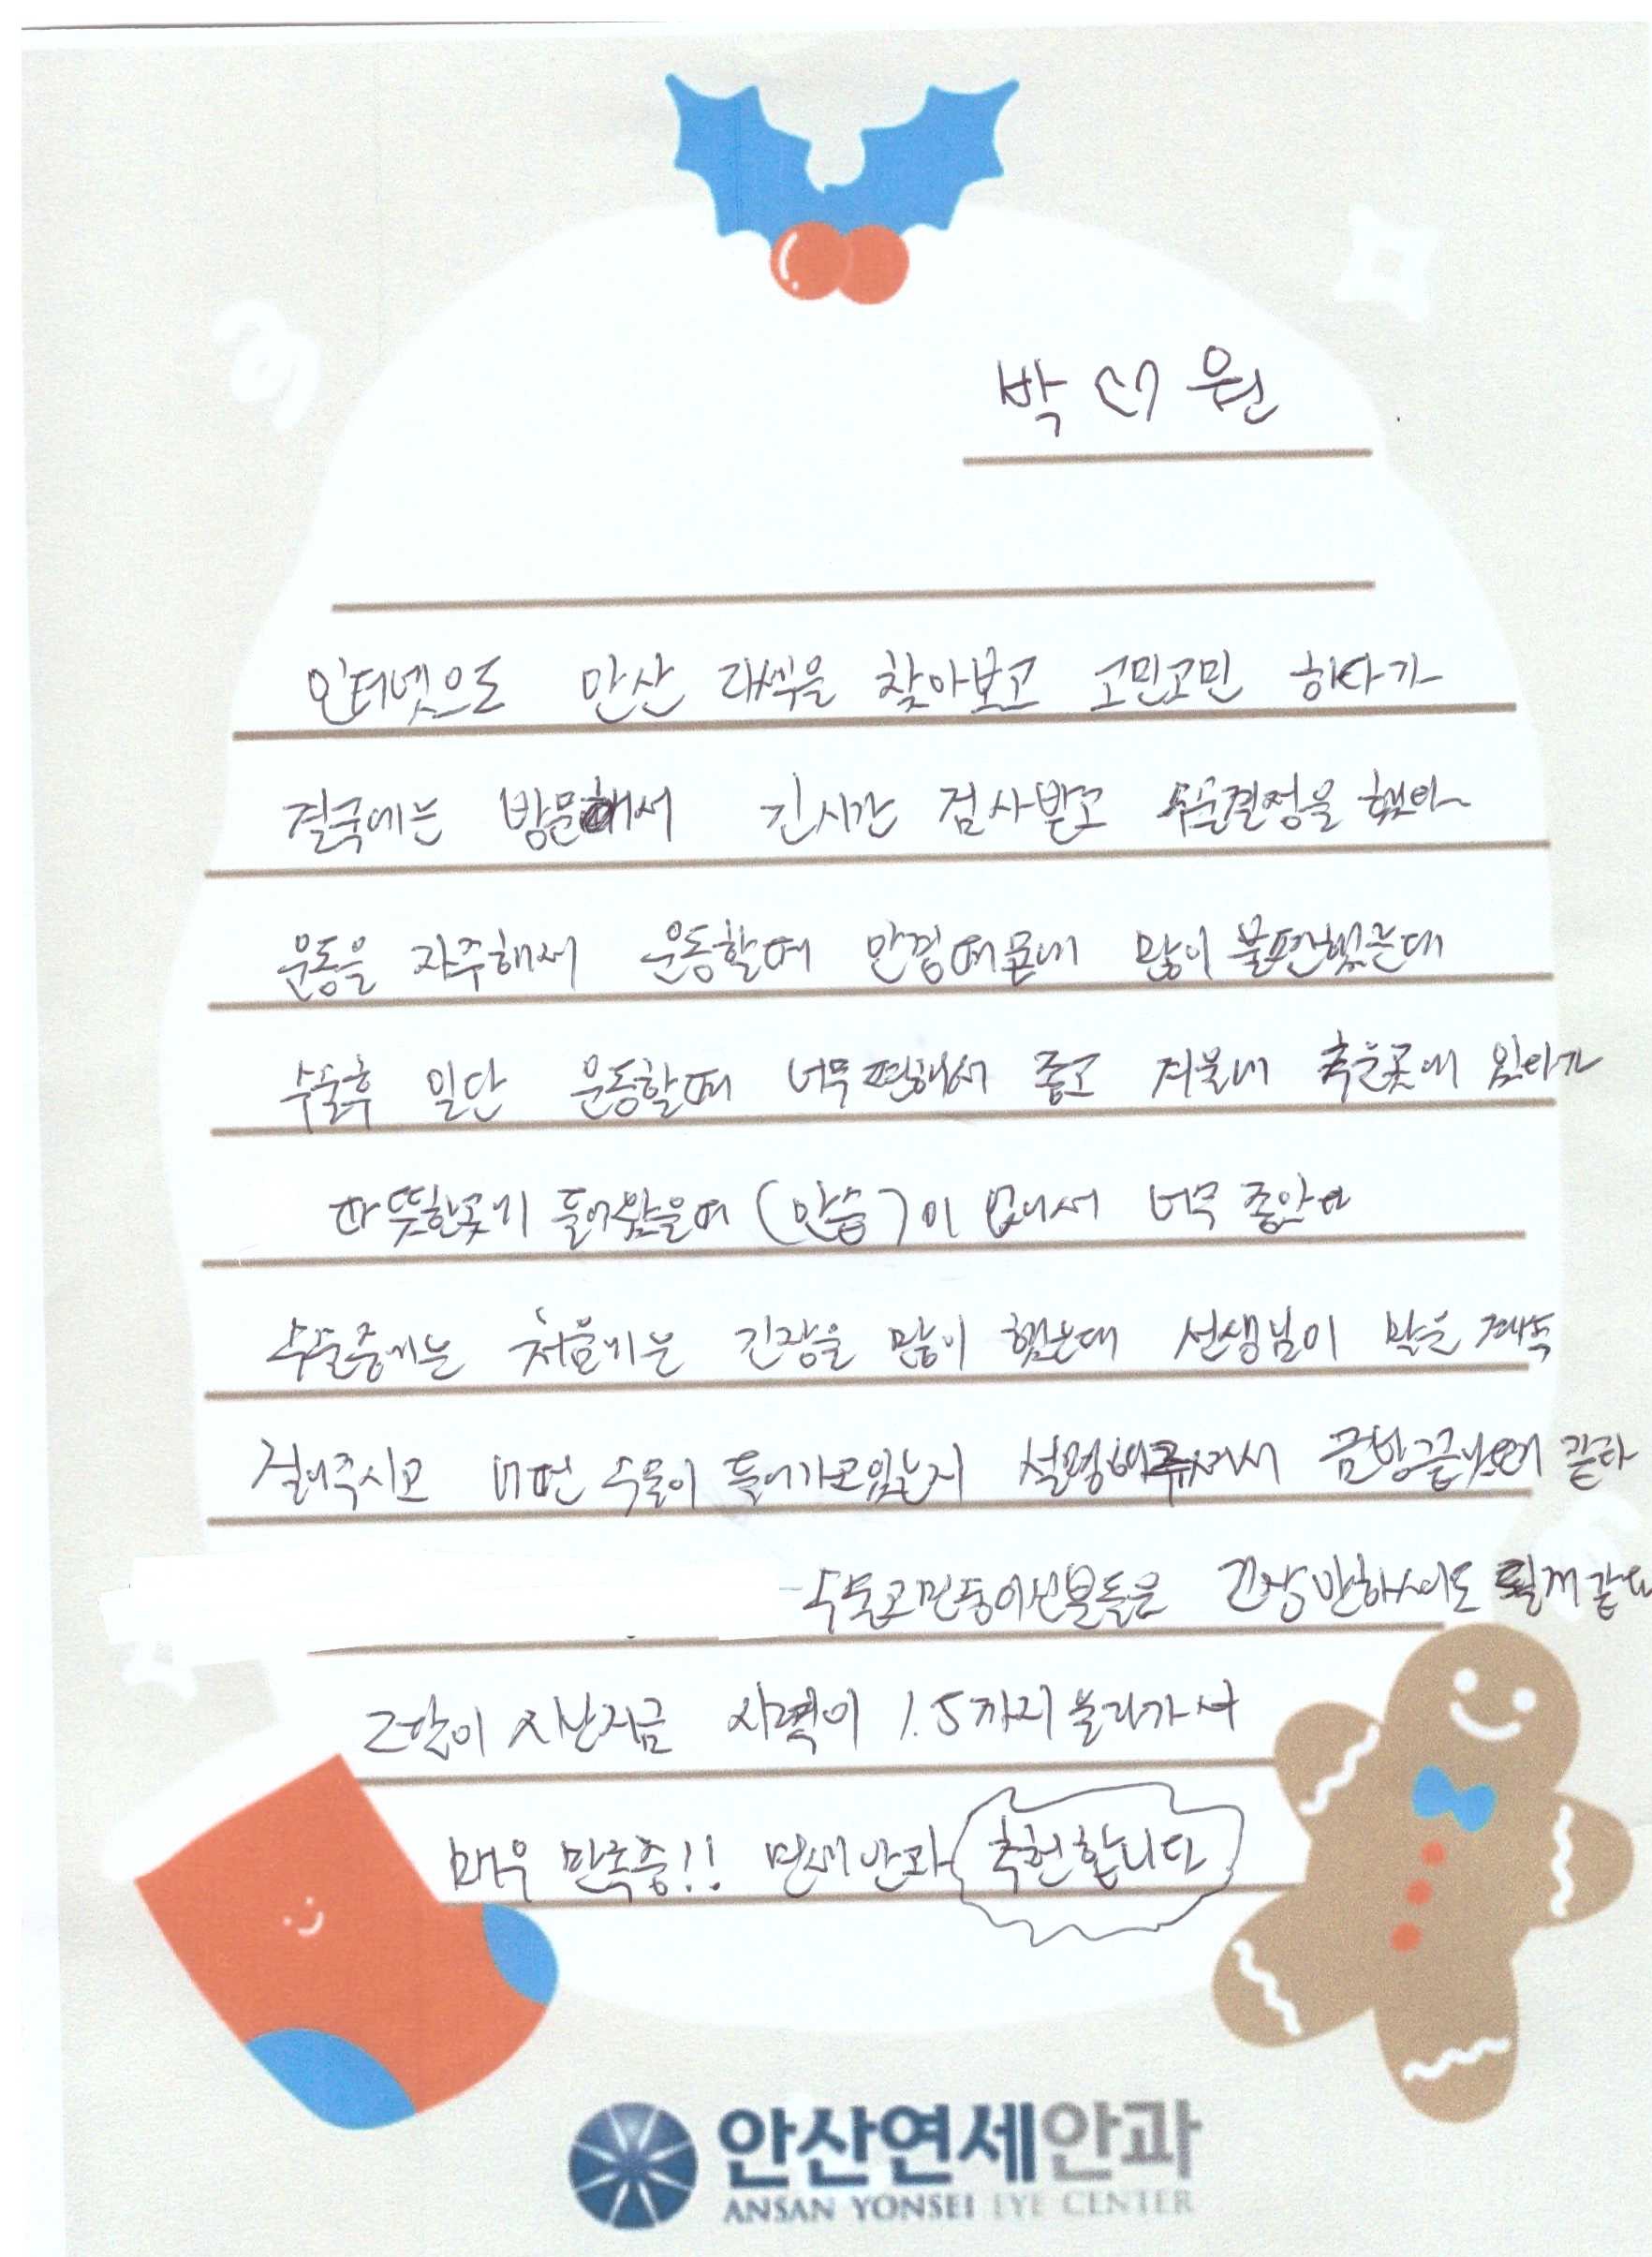 박♡원
인터넷으로 안산 라섹을 찾아보고 고민고민 하다가
결국에는 방문해서 긴시간 검사받고 수술결정을 했다
운동을 자주해서 운동할때 안경때문에 많이 불편했는데
수술후 일단 운동할때 너무편해서 좋고 겨울에 추운곳에 있다가
따뜻한곳에 들어왔을때 (안습)이 없어서 너무 좋았다
수술중에는 처음에는 긴장을 많이 했는데 선생님이 말을 계속
걸어주시고 어떤 수술이 들어가고있는지 설명해주셔서 금방끝난거 같다
수술고민중이신분들은 긴장안하셔도 될거 같다
2달이 지난지금 시력이 1.5까지 올라가서
매우 만족중!! 연세안과 추천합니다
안산연세안과
ANSAN YONSEI EYE CENTER